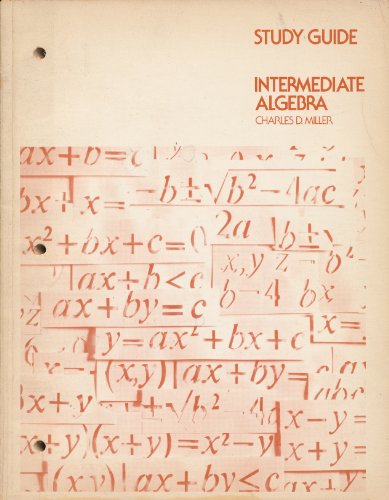 STUDY GUIDE
INTERMEDIATE
ALGEBRA
CHARLES D. MILLER
ax+b=c
bx+x=
-b±√b²-4ac
2a
b±√
x²+bx+c=0
x, y z-b
ax+b<c
b-4 bx
z
ax+by=c
x=
y=ax²+bx+c
x-
(x,y)|ax+by=
abc
x+y
+√b²
x-y
(x+y)=x²-y²
x+y=
(x,y)|ax+by≤c